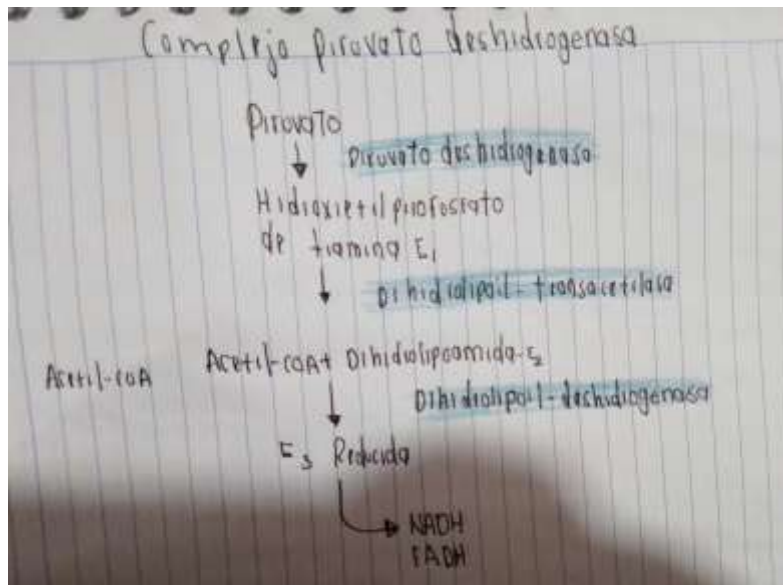 Complejo piruvato deshidrogenasa
Piruvato
Piruvato deshidrogenasa
Hidroxietil pirofosfato
de tiamina E₁
Dihidrolipoil-transacetilasa
Acetil-COA
Acetil-COA+ Dihidrolipoamida-E₂
Dihidrolipoil-deshidrogenasa
E₃ Reducida
NADH
FADH